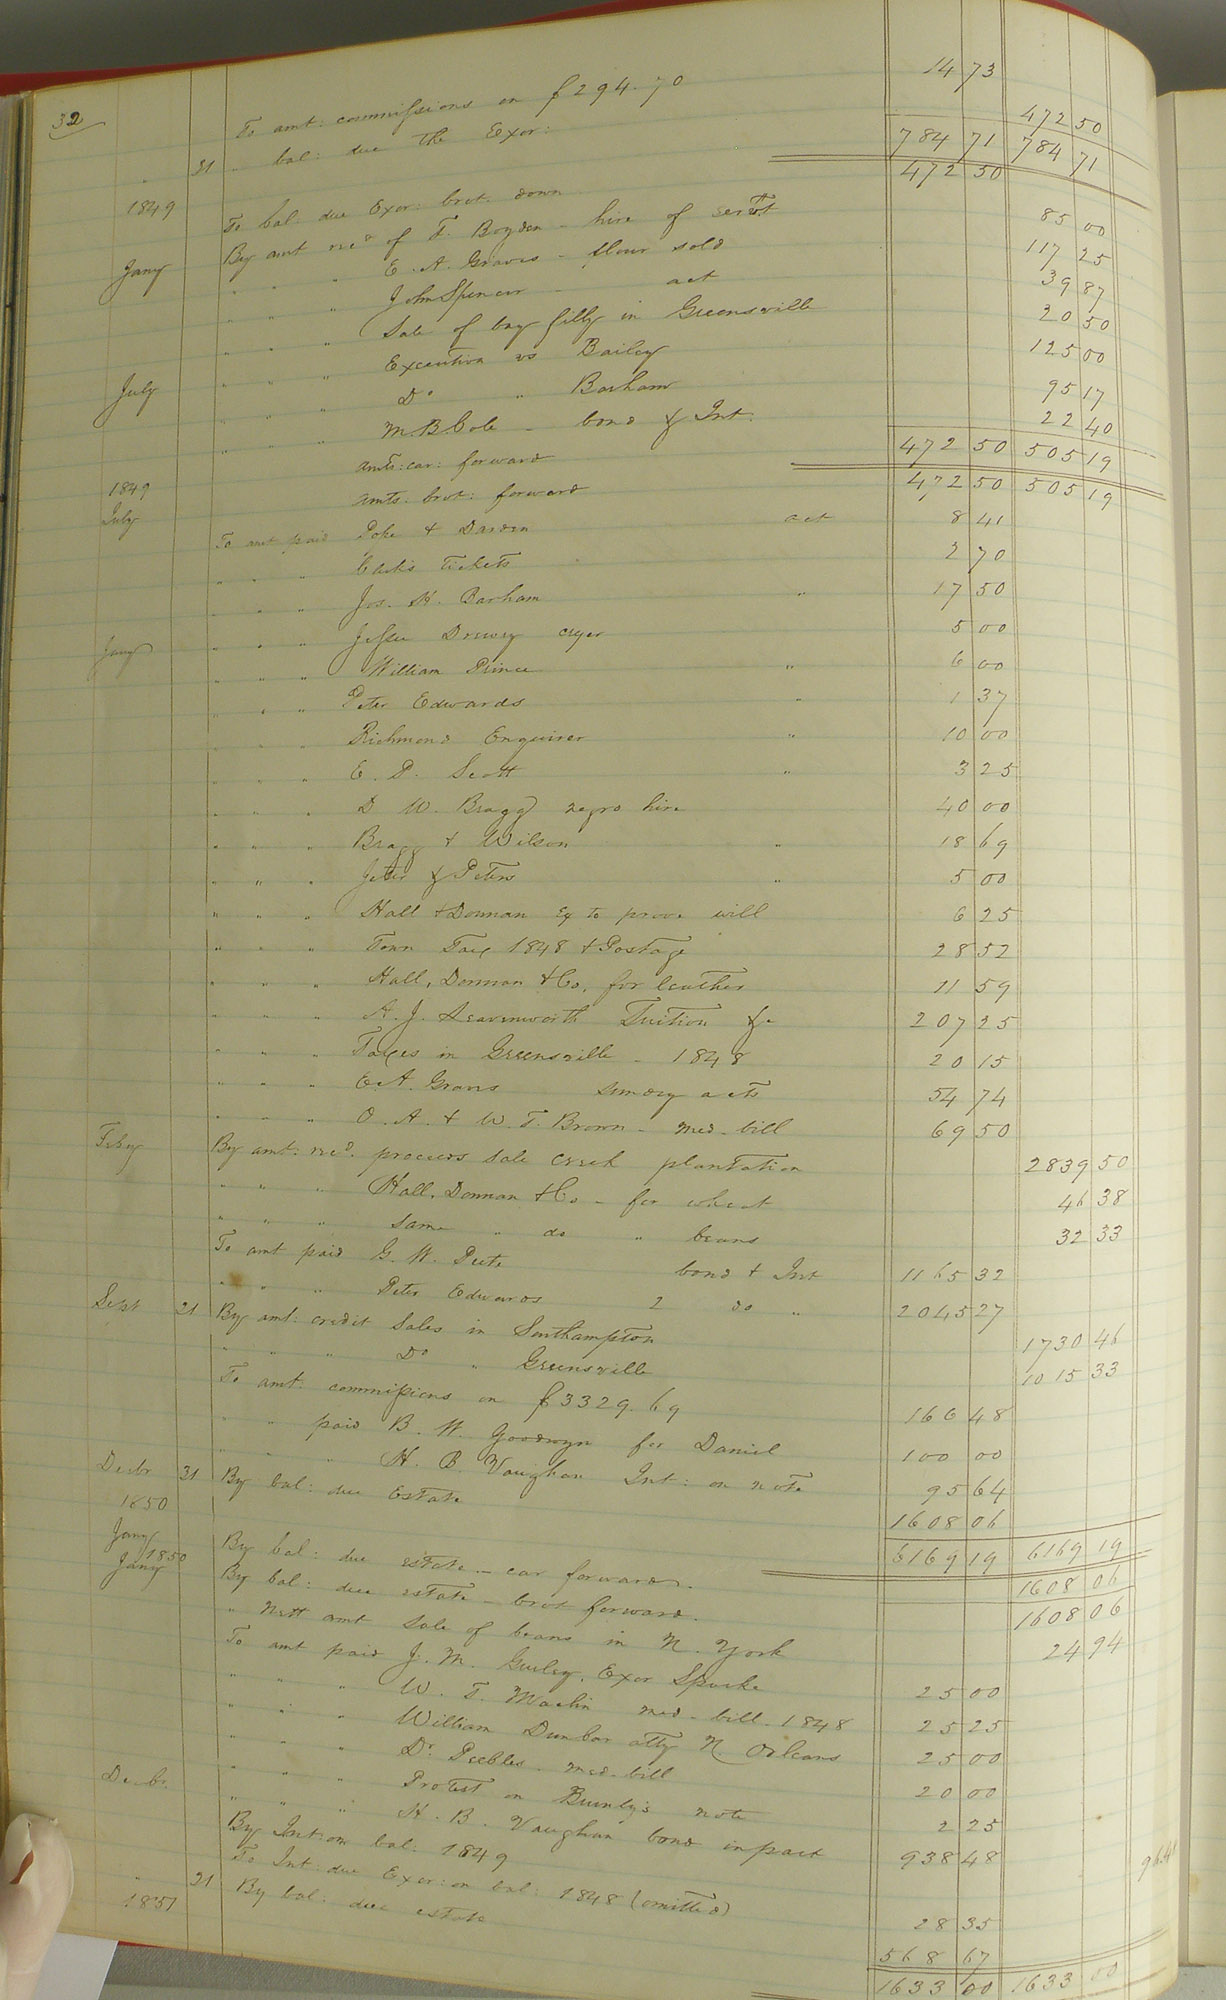 32
To amt: commissions on $294.70 14 73
31 " bal: due the Exor: 472 50
784 71 784 71
1849 To bal: due Exor: brot. down 472 50
Jany By amt recd of T. Boyden - hire of servt 85 00
" " " E. A. Graves - flour sold 117 25
" " " John Spencer - act 39 87
" " " Sale of bay filly in Greensville 20 50
July " " " Execution vs Bailey 125 00
" " Do " Barham 95 17
" " " M. B. Cole - bond & Int. 22 40
amts: car: forward 472 50 505 19
1849 amts. brot: forward 472 50 505 19
July To amt paid Poke & Darden act 8 41
" " " Clerks Tickets 2 70
" " " Jos. H. Barham " 17 50
" " " Jesse Drewry cryer 5 00
Jany " " " William Prince " 6 00
" " " Peter Edwards " 1 37
" " " Richmond Enquirer " 10 00
" " " E. P. Scott " 3 25
" " " D W. Bragg negro hire 40 00
" " " Bragg & Wilson " 18 69
" " " Jeter & Peters " 5 00
" " " Hall & Donnan Ex to prove will 6 25
" " " Town Tax 1848 & Postage 28 52
" " " Hall, Donnan & Co. for leather 11 59
" " " A. J. Leavenworth Tuition &c 207 25
" " " Taxes in Greensville - 1848 20 15
" " " E. A. Graves sundry acts 54 74
" " " O. A. & W. T. Brown - med. bill 69 50
Feby By amt: recd. proceeds sale creek plantation 2839 50
" " " Hall, Donnan & Co - for wheat 46 38
" " " same " do " beans 32 33
To amt paid G. W. Peete bond & Int 1165 32
" " " Peter Edwards 2 do " 2045 27
Sept 21 By amt: credit sales in Southampton 1730 46
" " " Do " Greensville 1015 33
To amt. commissions on $3329.69 166 48
" " paid B. W. Goodwyn for Daniel 100 00
" " " H. B. Vaughan Int: on note 95 64
Decbr 31 By bal: due Estate 1608 06
1850 6169 19 6169 19
Jany By bal: due estate - car forward. 1608 06
1850 Jany By bal: due estate - brot forward. 1608 06
" nett amt sale of beans in N. York 24 94
To amt paid J. M. Gurley, Exor Sparke 25 00
" " " W. T. Maclin med. bill. 1848 25 25
" " " William Dunbar atty N. Orleans 25 00
" " " Dr. Peebles - med. bill 20 00
" " " Protest on Burnly's note 2 25
Decbr. " " " H. B. Vaughan bond in part 938 48
By Int: on bal: 1849 96.48
To Int: due Exor: on bal: 1848 (omitted) 28 35
" 21 By bal: due estate 568 67
1851 1633 00 1633 00